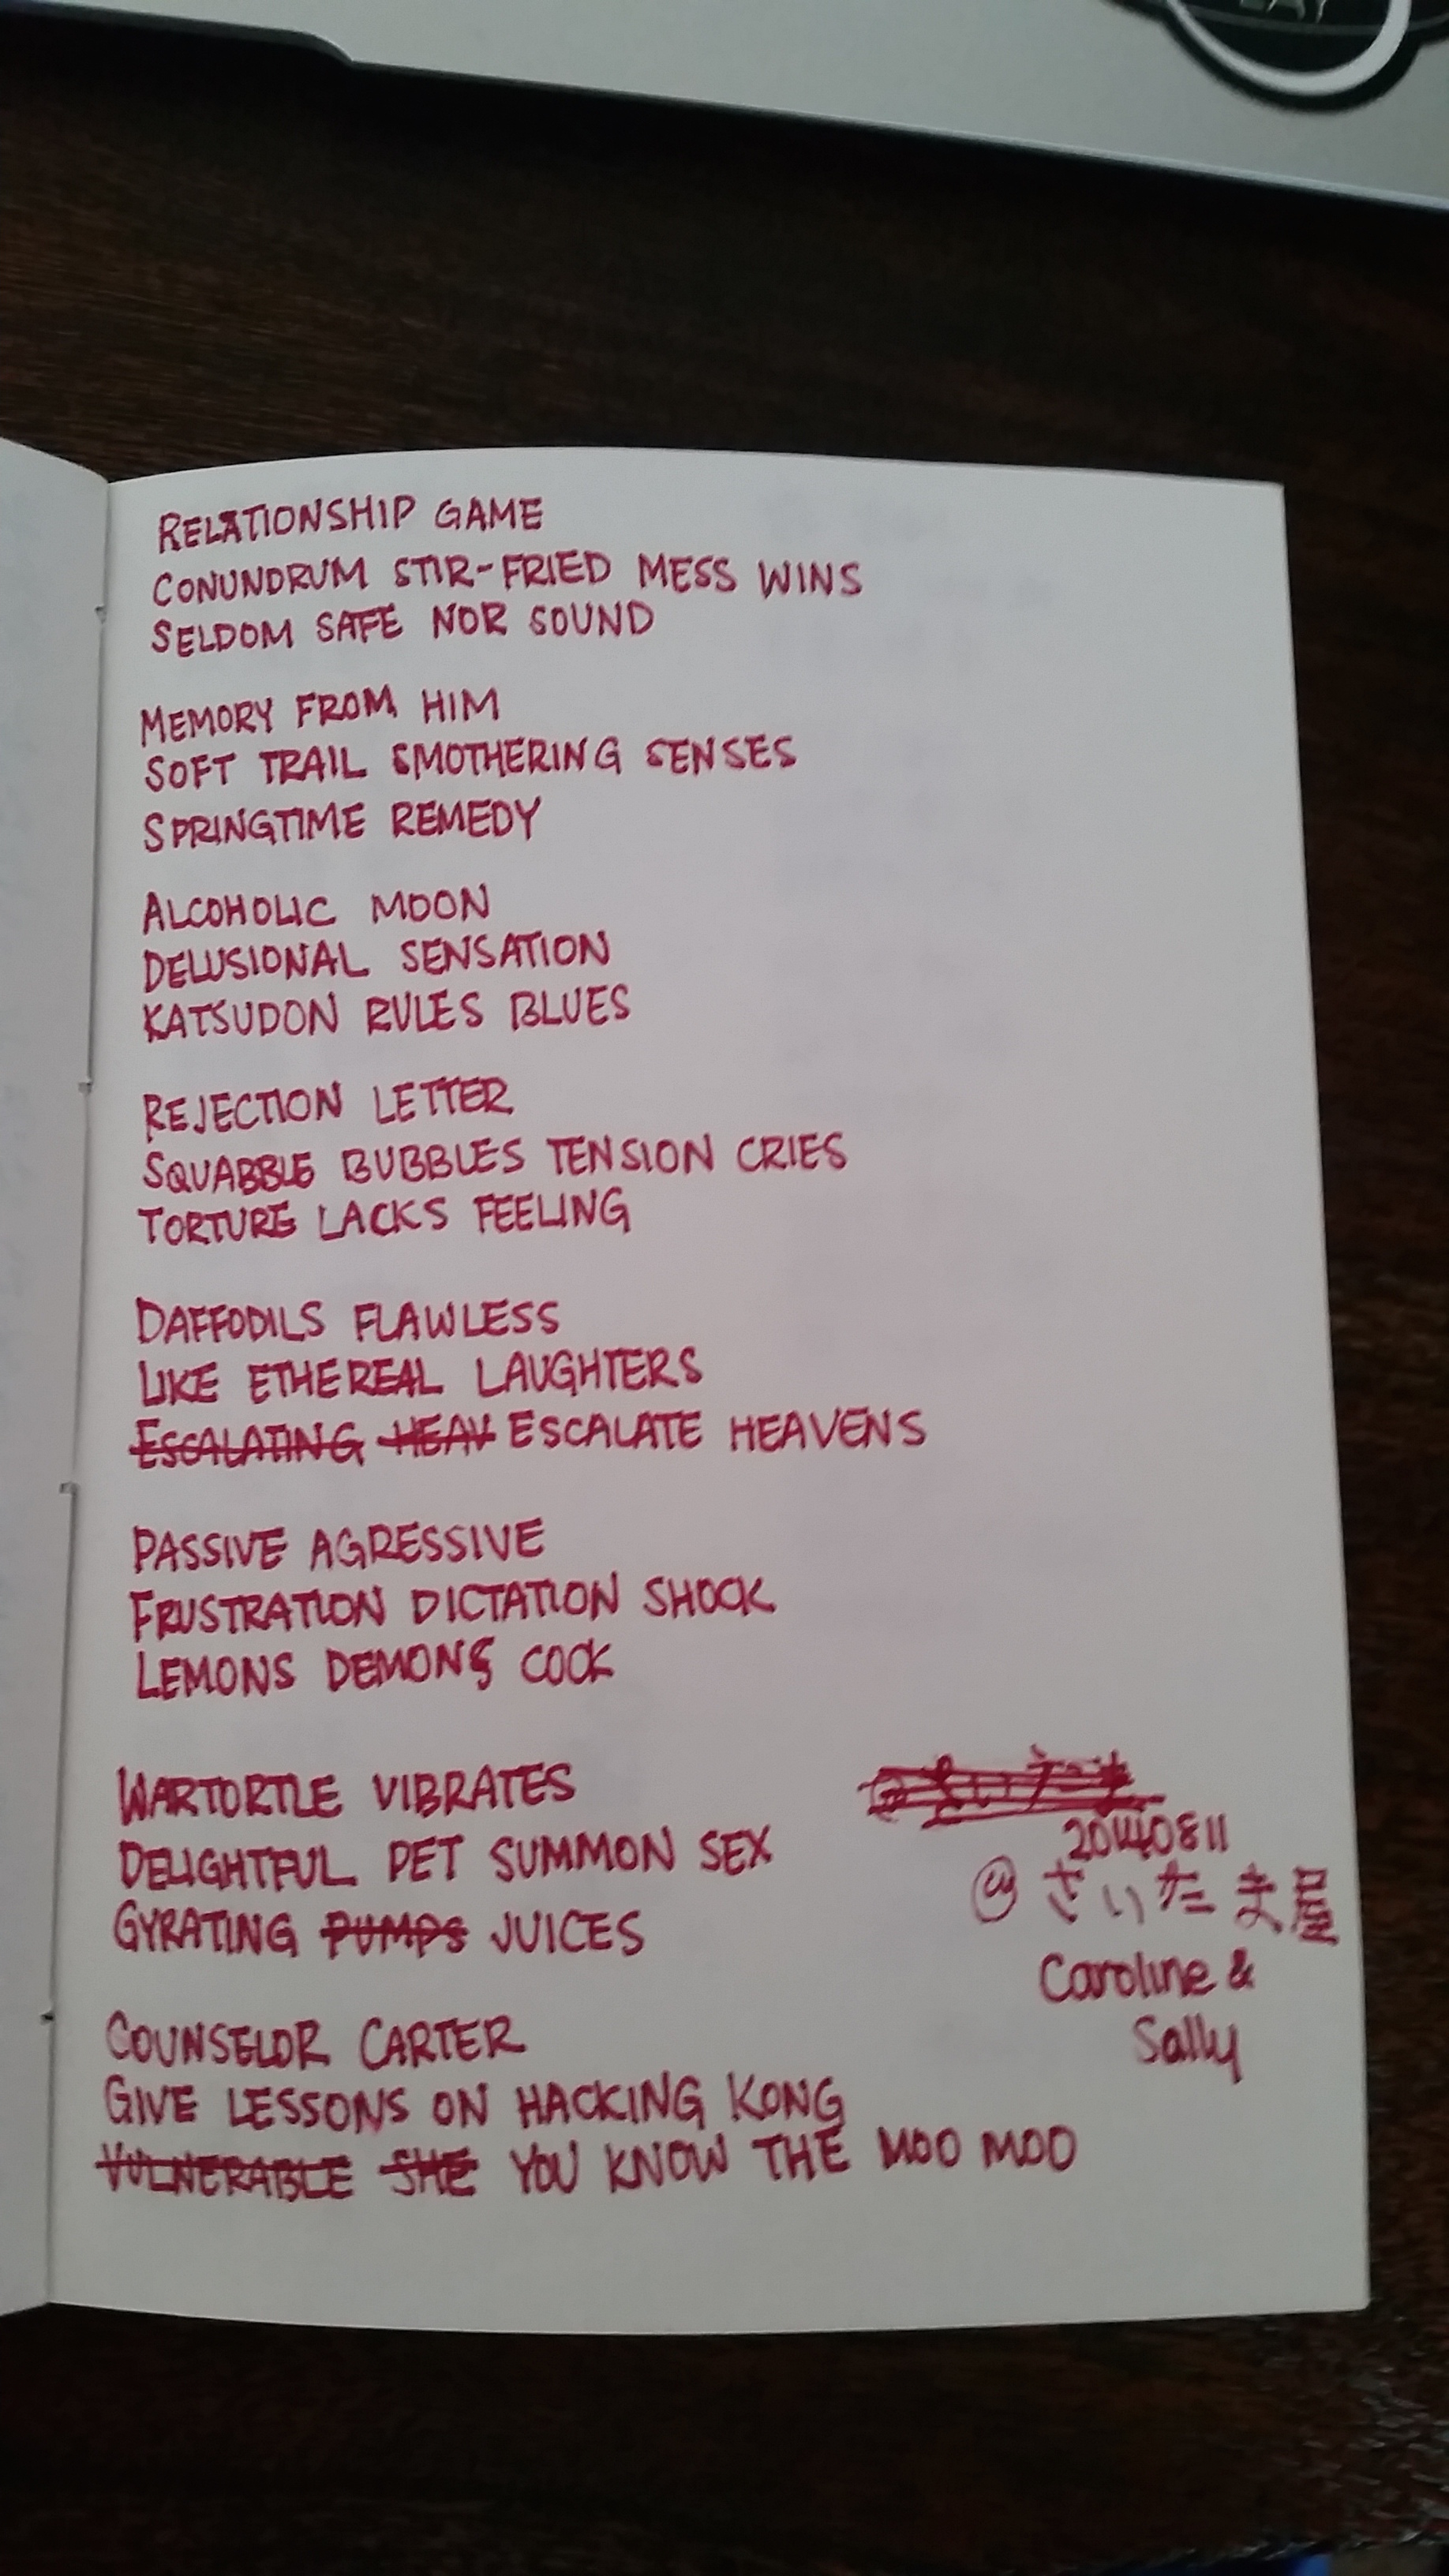 RELATIONSHIP GAME
CONUNDRUM STIR-FRIED MESS WINS
SELDOM SAFE NOR SOUND
MEMORY FROM HIM
SOFT TRAIL SMOTHERING SENSES
SPRINGTIME REMEDY
ALCOHOLIC MOON
DELUSIONAL SENSATION
KATSUDON RULES BLUES
REJECTION LETTER
SQUABBLE BUBBLES TENSION CRIES
TORTURE LACKS FEELING
DAFFODILS FLAWLESS
LIKE ETHEREAL LAUGHTERS
ESCALATING HEAV ESCALATE HEAVENS
PASSIVE AGRESSIVE
FRUSTRATION DICTATION SHOCK
LEMONS DEMONS COCK
WARTORTLE VIBRATES
DELIGHTFUL PET SUMMON SEX
GYRATING PUMPS JUICES
20140811
@ さいたま屋
Caroline &
Sally
COUNSELOR CARTER
GIVE LESSONS ON HACKING KONG
VULNERABLE SHE YOU KNOW THE MOO MOO